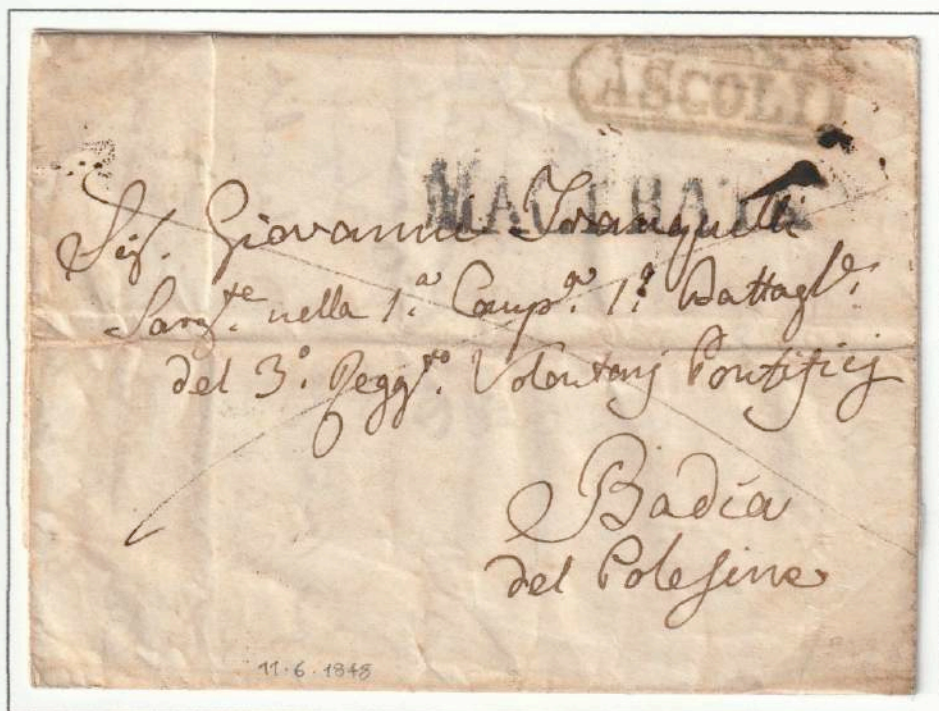 ASCOLI
MACERATA
Sig. Giovanni Tranquilli
Sargte. nella 1.a Comp.a 1.o Battagle.
del 3.o Reggto. Volontarj Pontificj
Badia
del Polesine
11.6.1848